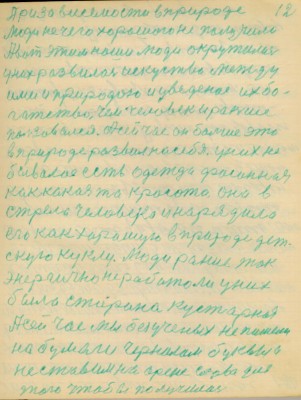 При зависемости в природе 12
люди нечего хорошого не получили
А вот этими наши люди окружились
у них развилось искуство между
ими и природою и уведеное их бо-
гатство, чем человек и раньше
пользовался. А сей час он больше это
в природе развил на себя. у них не
бывалое есть одежда фасонная
как какая то красота она в
стрела человека и нарядила
его как харашую в празде дет-
скую куклу. Люди раньше так
энергично не работали у них
была старона кустарная
А сей час мы без ученых не пишем
на бумаги черналам буквы и
не ставим на арене слова для
того чтобы получилас